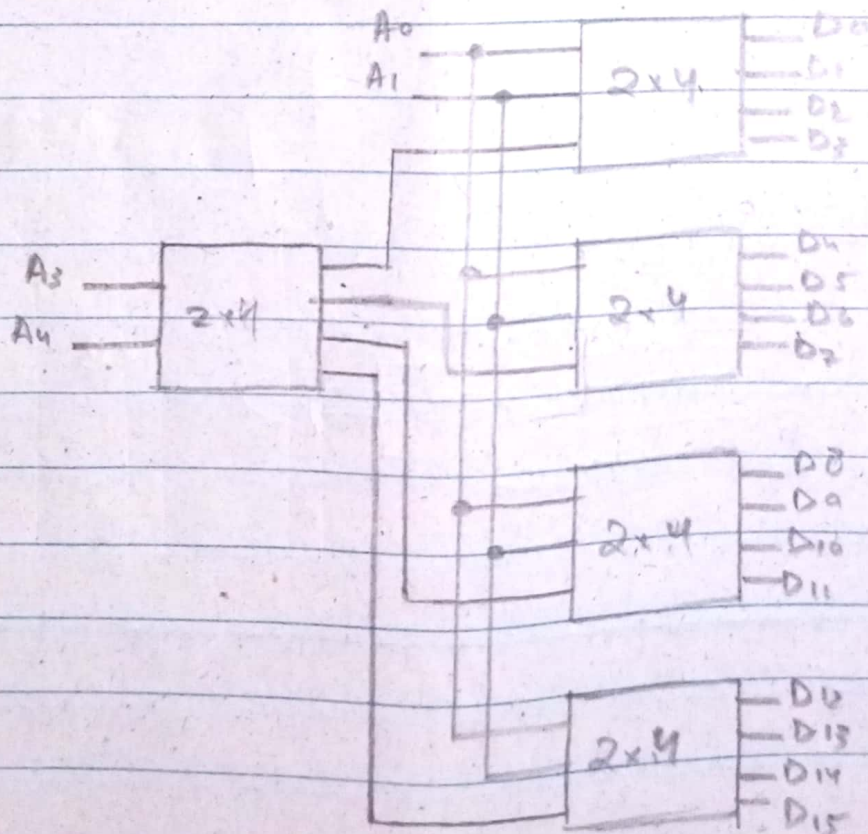 A0
A1
2x4
D0
D1
D2
D3
A3
A4
2x4
2x4
D4
D5
D6
D7
2x4
D8
D9
D10
D11
2x4
D12
D13
D14
D15